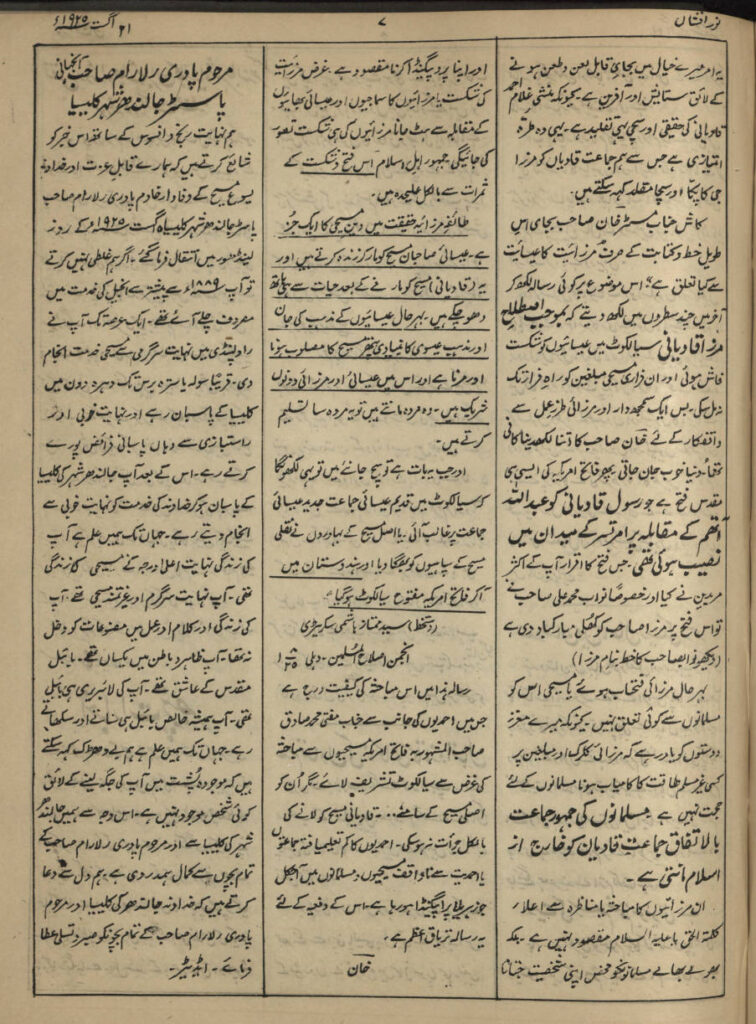 نور افشاں
۷
۲۱ اگست ۱۹۲۵ء
یہ امر میرے خیال میں بجائے قابل لعن و طعن ہونے
کے لائق ستائش اور آفرین ہے۔ کیونکہ منشی غلام احمد
قادیانی کی حقیقی اور سچی یہی تقلید ہے۔ یہی وہ طرۂ
امتیازی ہے جس سے ہم جماعت قادیاں کو مرزا
جی کا پکا اور سچا مقلد کہہ سکتے ہیں۔
کاش جناب مسٹر خان صاحب بجائے اس
طویل خط و کتابت کے صرف "مرزائیت کا عیسائیت
سے کیا تعلق ہے"؟ اس موضوع پر کوئی رسالہ لکھ کر
آخر میں چند سطروں میں لکھ دیتے کہ بموجب اصطلاح
مرزا قادیانی سیالکوٹ میں عیسائیوں کو شکست
فاش ہوئی اور ان فراری مسیحی مبلغین کو راہ فرار تک
نہ مل سکی۔ بس ایک سمجھدار اور مرزائی طرز عمل سے
واقفکار کے لئے خان صاحب کا اتنا لکھ دینا کافی
تھا۔ دنیا خوب جان جاتی یہ فاتح امریکہ کی ایسی ہی
مقدس فتح ہے جو رسول قادیانی کو عبداللہ
آتھم کے مقابلہ پر امرتسر کے میدان میں
نصیب ہوئی تھی۔ جس فتح کا اقرار آپ کے اکثر
مریدین نے کیا اور خصوصاً نواب محمد علی صاحب نے
تو اس فتح پر مرزا صاحب کو کھلی مبارکباد دی ہے
(دیکھو نواب صاحب کا خط بنام مرزا)
بہر حال مرزائی فتحیاب ہوئے یا مسیحی اس کو
مسلمانوں سے کوئی تعلق نہیں۔ کیونکہ میرے معزز
دوستوں کو یاد رہے کہ مرزائی کلرک اور مبلغین پر
کسی غیر مسلم طاقت کا کامیاب ہونا مسلمانوں کے لئے
حجت نہیں ہے۔ مسلمانوں کی جمہور جماعت
بالاتفاق جماعت قادیان کو خارج از
اسلام مانتی ہے۔
ان مرزائیوں کا مباحثہ یا مناظرہ سے اعلاء
کلمۃ الحق یا غلبہ اسلام مقصود نہیں ہے۔ بلکہ
بھولے بھالے مسلمانوں کو محض اپنی شخصیت جتانا
اور اپنا پروپیگنڈا کرنا مقصود ہے۔ غرض مرزائیت
کی شکست یا مرزائیوں کا سماجیوں اور عیسائی بھائیوں
کے مقابلہ سے ہٹ جانا مرزائیوں کی ہی شکست تصور
کی جائیگی۔ جمہور اہل اسلام اس فتح و شکست کے
ثمرات سے بالکل علیحدہ ہیں۔
طائفہ مرزائیہ حقیقت میں دین مسیحی کا ایک جز
ہے۔ عیسائی صاحبان مسیح کو مار کر زندہ کرتے ہیں اور
یہ (قادیانی) مسیح کو مارنے کے بعد حیات سے ہی ہاتھ
دھو چکے ہیں۔ بہر حال عیسائیوں کے مذہب کی جان
اور مذہب عیسوی کا بنیادی پتھر مسیح کا مصلوب ہونا
اور مرنا ہے اور اس میں عیسائی اور مرزائی دونوں
شریک ہیں۔ وہ مردہ مانتے ہیں تو یہ مردہ سا تسلیم
کرتے ہیں۔
اور جب یہ بات ہے تو سچ جانئے میں تو یہی لکھونگا
کہ سیالکوٹ میں قدیم عیسائی جماعت جدید عیسائی
جماعت پر غالب آئی۔ یا اصل مسیح کے بہادروں نے نقلی
مسیح کے سپاہیوں کو بھگا دیا اور ہندوستان میں
آکر فاتح امریکہ مفتوح سیالکوٹ ہوگیا۔
(دستخط) سید ممتاز ہاشمی سکریٹری
انجمن اصلاح المسلمین۔ دہلی
رسالہ ہذا میں اس مباحثہ کی کیفیت درج ہے
جس میں احمدیوں کی جانب سے جناب مفتی محمد صادق
صاحب المشہور بہ فاتح امریکہ مسیحیوں سے مباحثہ
کی غرض سے سیالکوٹ تشریف لائے۔ مگر ان کو
اصلی مسیح کے سامنے ۔۔۔۔ قادیانی مسیح کو لانے کی
بالکل جرأت نہ ہوسکی۔ احمدیوں کا کم تعلیمیافتہ جماعتوں
یا احمدیت سے ناواقف مسیحیوں و مسلمانوں میں آجکل
جو زہریلا پراپیگنڈا ہو رہا ہے۔ اس کے دفعیہ کے لئے
یہ رسالہ تریاق اعظم ہے۔
خان
مرحوم پادری رلارام صاحب آنجہانی
پاسٹر جالندھر شہر کلیسیا
ہم نہایت رنج و افسوس کے ساتھ اس خبر کو
شائع کرتے ہیں کہ ہمارے قابل عزت اور خداوند
یسوع مسیح کے وفادار خادم پادری رلارام صاحب
پاسٹر جالندھر شہر کلیسیا ۵ اگست ۱۹۲۵ء کے روز
لینڈھور میں انتقال فرماگئے۔ اگر ہم غلطی نہیں کرتے
تو آپ ۱۸۸۹ء سے پیشتر سے انجیل کی خدمت میں
مصروف چلے آئے تھے۔ ایک عرصہ تک آپ نے
راولپنڈی میں نہایت سرگرمی سے مسیحی خدمت انجام
دی۔ قریباً سولہ یا سترہ برس تک دہرہ دون میں
کلیسیا کے پاسبان رہے اور نہایت خوبی اور
راستبازی سے وہاں پاسبانی فرائض پورے
کرتے رہے۔ اس کے بعد آپ جالندھر شہر کی کلیسیا
کے پاسبان ہو کر خداوند کی خدمت کو نہایت خوبی سے
انجام دیتے رہے۔ جہاں تک ہمیں علم ہے آپ
کی زندگی نہایت اعلےٰ درجہ کے مسیحی کی زندگی
تھی۔ آپ نہایت سرگرم اور غیرتمند مسیحی تھے۔ آپ
کی زندگی اور کلام اور عمل میں مصنوعات کو دخل
نہ تھا۔ آپ ظاہر و باطن میں یکساں تھے۔ بائبل
مقدس کے عاشق تھے۔ آپ کی لائبریری ہی بائبل
تھی۔ آپ ہمیشہ خالص بائبل ہی سناتے اور سکھاتے
رہے۔ جہاں تک ہمیں علم ہے ہم بے دھڑک کہہ سکتے
ہیں کہ موجودہ پشت میں آپ کی جگہ لینے کے لائق
کوئی شخص موجود نہیں ہے۔ اس وجہ سے ہمیں جالندھر
شہر کی کلیسیا سے اور مرحوم پادری رلارام صاحب کے
تمام بچوں سے کمال ہمدردی ہے۔ ہم دل سے دعا
کرتے ہیں کہ خداوند جالندھر کی کلیسیا اور مرحوم
پادری رلارام صاحب کے تمام بچونکو صبر و تسلی عطا
فرمائے۔ ایڈیٹر۔